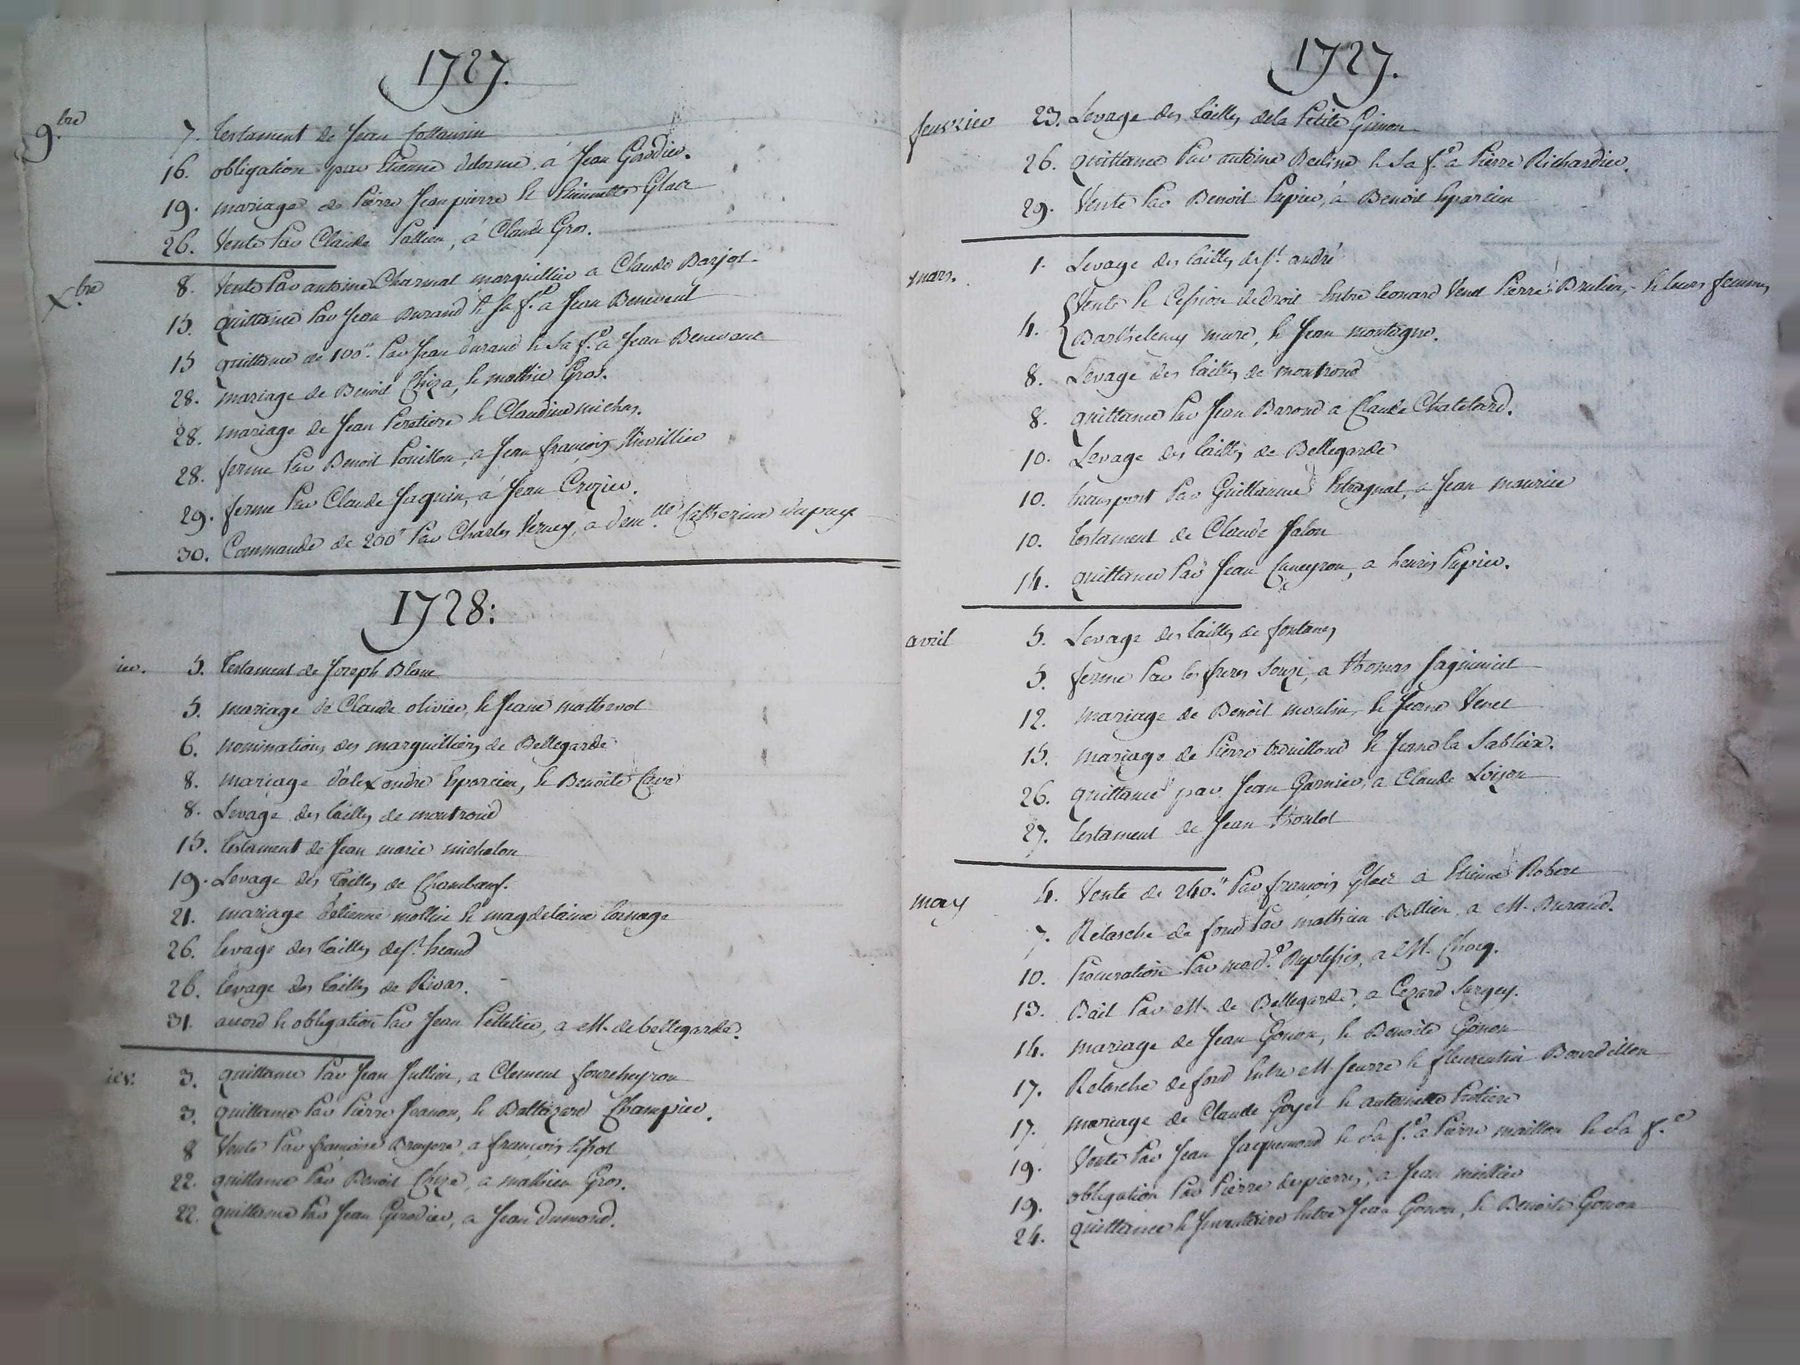 1727.
9.bre 7. testament de Jean
16. obligation par Etienne delorme, à Jean Girodier.
19. mariage de Pierre Jeanpierre & Pierrette Glaix
26. Vente Par Claude Pallien, à Claude Gros.
X.bre 8. Vente Par antoine Charmat marguillier a Claude Barjot
15. quittance Par Jean Durand & sa f.e à Jean Benevent
15 quittance de 100.lt Par Jean durand & sa f.e à Jean Benevent
28. mariage de Benoit Chiza, & mathie Gros.
28. mariage de Jean Peretiere & Claudine michas.
28. ferme Par Benoit Pouillon, a Jean françois Thevillier
29. ferme Par Claude Jaquin, à Jean Crozier.
30. Commande de 200lt Par Charles Verney, a dem.lle Catherine dupuy
1728:
ier. 5. Testament de Joseph Blanc
5. mariage de Claude olivier, & Jeane mathevot
6. nomination des marguilliers de Bellegarde
8. mariage d'alexandre Eparcieu, & Benoite Cave
8. Levage des tailles de montrond
15. Testament de Jean marie michalon
19. Levage des Tailles de Chambœuf.
21. mariage d'etienne mollin & magdelaine
26. levage des Tailles de st. heand
26. levage des tailles de Rivas.
31. accord & obligation Par Jean Pelletier, a M. de bellegarde.
ier. 3. quittance Par Jean Jullien, a Clement fourcheyron
3. quittance Par Pierre Jeanon, & Baltazard Champier.
8 Vente Par françoise Bruyere, a françois
22. quittance Par Benoit Chize, a mathieu Gros.
22. quittance Par Jean Girodier, a Jean dumond.
1727.
feuvrier 23. Levage des tailles de la Petite Gimon
26. quittance Par antoine & sa f.e à Pierre Richardier.
29. Vente Par Benoit Papier, à Benoit Eparcieu
mars. 1. Levage des tailles de st. andré
4. Vente & Cession de droit Entre leonard Venet Pierre Brulier, & leurs femmes,
Barthelemy mure, & Jean montagne.
8. Levage des tailles de montrond
8. quittance Par Jean Barond a Claude Chatelard.
10. Levage des tailles de Bellegarde
10. transport Par Guillaume a Jean maurice
10. Testament de Claude Jalon
14. quittance Par Jean Caneyron, a henris Papier.
avril 5. Levage des tailles de fontanes
5. ferme Par les freres Souzi, a thomas Jaquemiet
12. mariage de Benoit moulin, & Jeane Venet
15. mariage de Pierre trouillond & Jeane la Sablière.
26. quittance par Jean Garnier, a Claude Loison
27. testament de Jean Thoulot
may 4. Vente de 240.lt Par françois Glaix à Etienne Robert
7. Relasche de fond Par mathieu Bellien, a M. Durand.
10. Procuration Par mad.e Duplessis, a M. Choeq.
13. Bail Par M. de Bellegarde, a Cezard Surgey.
14. mariage de Jean Gonon, & Benoite Gonon
17. Relasche de fond Entre M. feurre & fleurentin Bourdillon
17. mariage de Claude Goyet & antoinette Protiere
19. Vente Par Jean Jaquemond & sa f.e a Pierre maillon & sa f.e
19. obligation Par Pierre despierres, a Jean millier
24. quittance & Inventaire Entre Jean Gonon, & Benoite Gonon